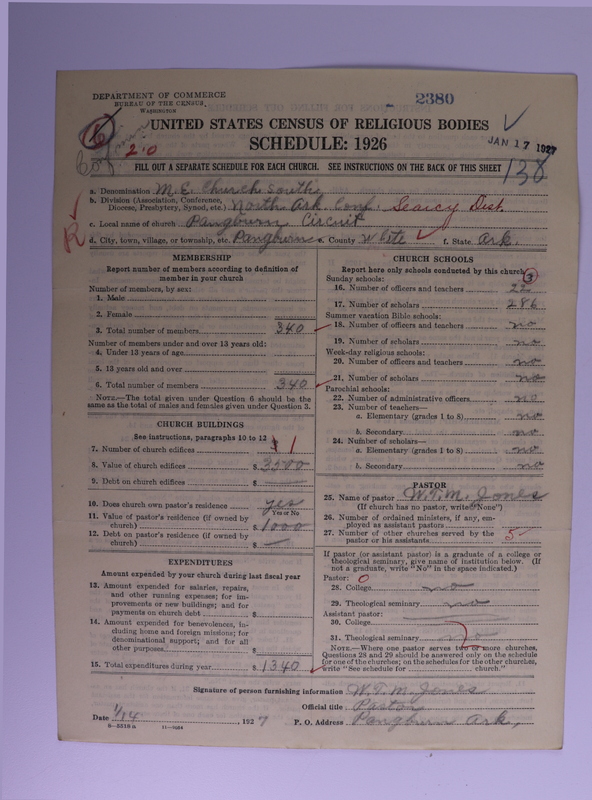 DEPARTMENT OF COMMERCE
BUREAU OF THE CENSUS
WASHINGTON
2380
UNITED STATES CENSUS OF RELIGIOUS BODIES
SCHEDULE: 1926
JAN 17 1927
20
FILL OUT A SEPARATE SCHEDULE FOR EACH CHURCH. SEE INSTRUCTIONS ON THE BACK OF THIS SHEET
138
a. Denomination M. E. Church South
b. Division (Association, Conference, Diocese, Presbytery, Synod, etc.) North Ark. Conf. Searcy Dist.
c. Local name of church Pangburn Circuit
R
d. City, town, village, or township, etc. Pangburn e. County White f. State Ark.
MEMBERSHIP
Report number of members according to definition of
member in your church
Number of members, by sex:
1. Male
2. Female
3. Total number of members 340
Number of members under and over 13 years old:
4. Under 13 years of age
5. 13 years old and over
6. Total number of members 340
NOTE.—The total given under Question 6 should be the
same as the total of males and females given under Question 3.
CHURCH BUILDINGS
See instructions, paragraphs 10 to 12
7. Number of church edifices 1
8. Value of church edifices $ 3500
9. Debt on church edifices $
10. Does church own pastor's residence yes
Yes or No
11. Value of pastor's residence (if owned by
church) $ 1000
12. Debt on pastor's residence (if owned by
church) $ —
EXPENDITURES
Amount expended by your church during last fiscal year
13. Amount expended for salaries, repairs,
and other running expenses; for im-
provements or new buildings; and for
payments on church debt $
14. Amount expended for benevolences, in-
cluding home and foreign missions; for
denominational support; and for all
other purposes $
15. Total expenditures during year $ 1340
CHURCH SCHOOLS
Report here only schools conducted by this church
3
Sunday schools:
16. Number of officers and teachers 22
17. Number of scholars 286
Summer vacation Bible schools:
18. Number of officers and teachers no
19. Number of scholars no
Week-day religious schools:
20. Number of officers and teachers no
21. Number of scholars no
Parochial schools:
22. Number of administrative officers no
23. Number of teachers—
a. Elementary (grades 1 to 8) no
b. Secondary no
24. Number of scholars—
a. Elementary (grades 1 to 8) no
b. Secondary no
PASTOR
25. Name of pastor W. T. M. Jones
(If church has no pastor, write "None")
26. Number of ordained ministers, if any, em-
ployed as assistant pastors
27. Number of other churches served by the
pastor or his assistants 5
If pastor (or assistant pastor) is a graduate of a college or
theological seminary, give name of institution below. (If
not a graduate, write "No" in the space indicated.)
Pastor: 0
28. College no
29. Theological seminary no
Assistant pastor:
30. College
31. Theological seminary no
NOTE.—Where one pastor serves two or more churches,
Questions 28 and 29 should be answered only on the schedule
for one of the churches; on the schedules for the other churches,
write "See schedule for church."
Signature of person furnishing information W. T. M. Jones
Official title Pastor
Date 1/14, 1927 P. O. Address Pangburn Ark.
8—5519 a